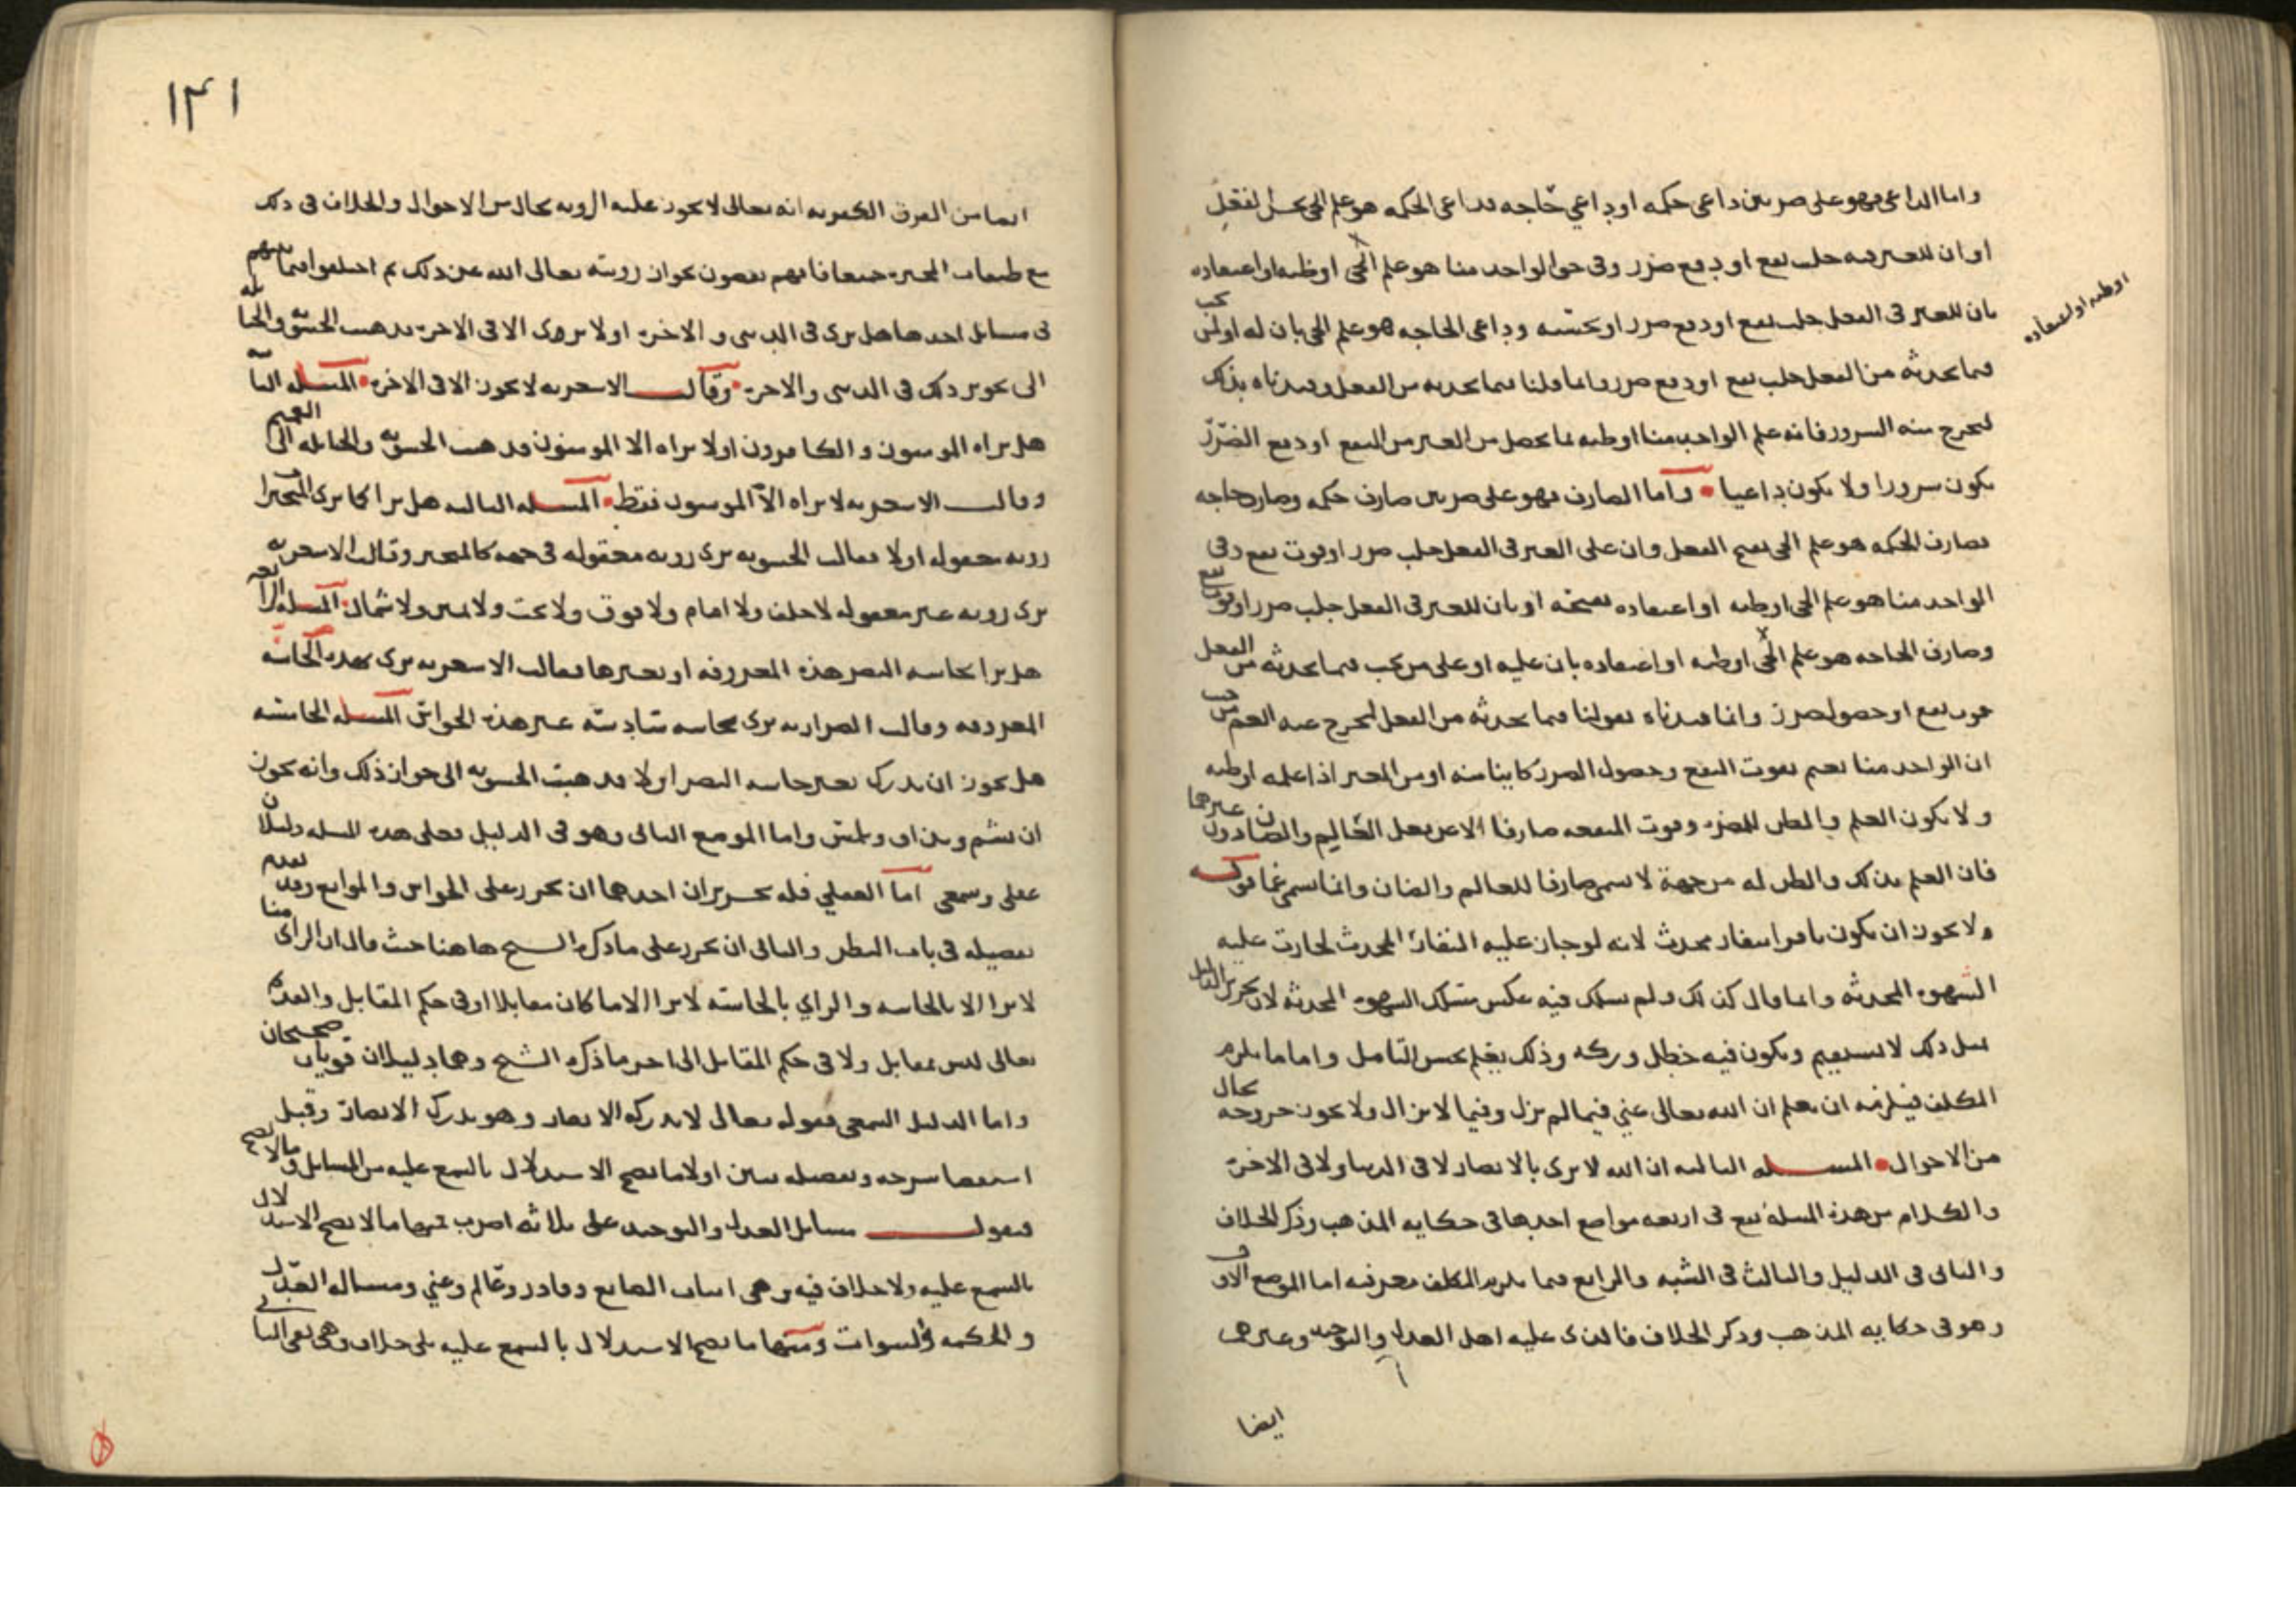 واما الداعي فهو على ضربين داعي حكمه او داعي حاجه فداعي الحكمه هو علم الحي بحسن الفعل
او ان للغير فيه جلب نفع او دفع ضرر وفي حق الواحد منا هو علم الحي او ظنه او اعتقاده
بان للغير في الفعل جلب نفع او دفع ضرر او بحسنه وداعي الحاجه هو علم الحي بان له او لمن يحب
او ظنه او اعتقاده
فيما يحدثه من الفعل جلب نفع او دفع ضرر وانما قلنا فيما يحدثه من الفعل وقيدناه بذلك
ليخرج منه السرور فانه علم الواحد منا او ظنه بما يحصل من الغير من النفع او دفع الضرر
يكون سرورا ولا يكون داعيا واما الصارف فهو على ضربين صارف حكمه وصارف حاجه
فصارف الحكمه هو علم الحي بقبح الفعل وان على الغير في الفعل جلب ضرر او فوت نفع وفي
الواحد منا هو علم الحي او ظنه او اعتقاده بقبحه او بان للغير في الفعل جلب ضرر او فوت نفع
وصارف الحاجه هو علم الحي او ظنه او اعتقاده بان عليه او على من يحب فيما يحدثه من الفعل
فوت نفع او حصول ضرر وانما قيدناه بقولنا فيما يحدثه من الفعل ليخرج عنه الغم
ان الواحد منا يغتم بفوت النفع وحصول الضرر كاينا منه او من الغير اذا علمه او ظنه
ولا يكون العلم والظن للمضره وفوت المنفعه صارفا الا عن فعل العالم والصادر من غيرهما
فان العلم بذلك والظن له من جهة لا يسمى صارفا للعالم والضان وانما يسمى غما قوله
ولا يجوز ان يكون نافرا بنفار محدث لانه لو جاز عليه النفار المحدث لجازت عليه
الشهوه المحدثه وانما قال كذلك ولم يسلك فيه عكس مسلك الشهوه المحدثه لان تحرير الدليل
مثل ذلك لا يستقيم ويكون فيه خطل وركه وذلك يعلم بحسن التامل واما ما يلزم
المكلف فيلزمه ان يعلم ان الله تعالى غني فيما لم يزل وفيما لا يزال ولا يجوز خروجه بحال
من الاحوال المسله الثالثه ان الله لا يرى بالابصار لا في الدنيا ولا في الاخره
والكلام من هذه المسله يقع في اربعه مواضع احدها في حكايه المذهب وذكر الخلاف
والثاني في الدليل والثالث في الشبه والرابع فيما يلزم المكلف معرفته اما الموضع الاول
وهو في حكايه المذهب وذكر الخلاف فالذي عليه اهل العدل والتوحيد وغيرهم
ايضا
١٤١
ايضا من الفرق الكفريه انه تعالى لا يجوز عليه الرويه بحال من الاحوال والخلاف في ذلك
مع طبقات المجبره جميعا فانهم يقضون بجواز رويته تعالى الله عن ذلك ثم اختلفوا فيما بينهم
في مسايل احدها هل يرى في الدنيا والاخره او لا يرى الا في الاخره فذهب الحشويه والحنابله
الى تجويز ذلك في الدنيا والاخره وقالت الاشعريه لا يجوز الا في الاخره المسله الثانيه
هل يراه المومنون والكافرون او لا يراه الا المومنون فذهب الحشويه والحنابله الى التعميم
وقالت الاشعريه لا يراه الا المومنون فقط المسله الثالثه هل يرا كما يرى المتحيز
رويه معقوله او لا فقالت الحشويه يرى رويه معقوله في جهه كالمتحيز وقالت الاشعريه
يرى رويه غير معقوله لا خلف ولا امام ولا فوق ولا تحت ولا يمين ولا شمال المسله الرابعه
هل يرا بحاسه البصر هذه المعروفه او بغيرها فقالت الاشعريه يرى بهذه الحاسه
المعروفه وقالت الضراريه يرى بحاسه سادسه غير هذه الحواس المسله الخامسه
هل يجوز ان يدرك بغير حاسه البصر او لا فذهبت الحشويه الى جواز ذلك وانه يجوز
ان يشم ويذاق ويلمس واما الموضع الثاني وهو في الدليل فعلى هذه المسله دليلان
عقلي وسمعي اما العقلي فله تحريران احدهما ان يحرر على الحواس والموانع وقد تقدم
تفصيله في باب النظر والثاني ان يحرر على ما ذكره الشيخ هاهنا حيث قال ان الراي منا
لا يرا الا بالحاسه والراي بالحاسه لا يرا الا ما كان مقابلا او في حكم المقابل والقديم
تعالى ليس بمقابل ولا في حكم المقابل الى اخر ما ذكره الشيخ وهما دليلان قويان صحيحان
واما الدليل السمعي فقوله تعالى لا تدركه الابصار وهو يدرك الابصار وقبل
استقصا شرحه وتفصيله نبين اولا ما يصح الاستدلال بالسمع عليه من المسايل وما لا يصح
فنقول مسايل العدل والتوحيد على ثلاثه اضرب منها ما لا يصح الاستدلال
بالسمع عليه ولا خلاف فيه وهي اثبات الصانع وقادر وعالم وغني ومساله العدل
والحكمه والنبوات ومنها ما يصح الاستدلال بالسمع عليه بلا خلاف وهي نفي الثاني